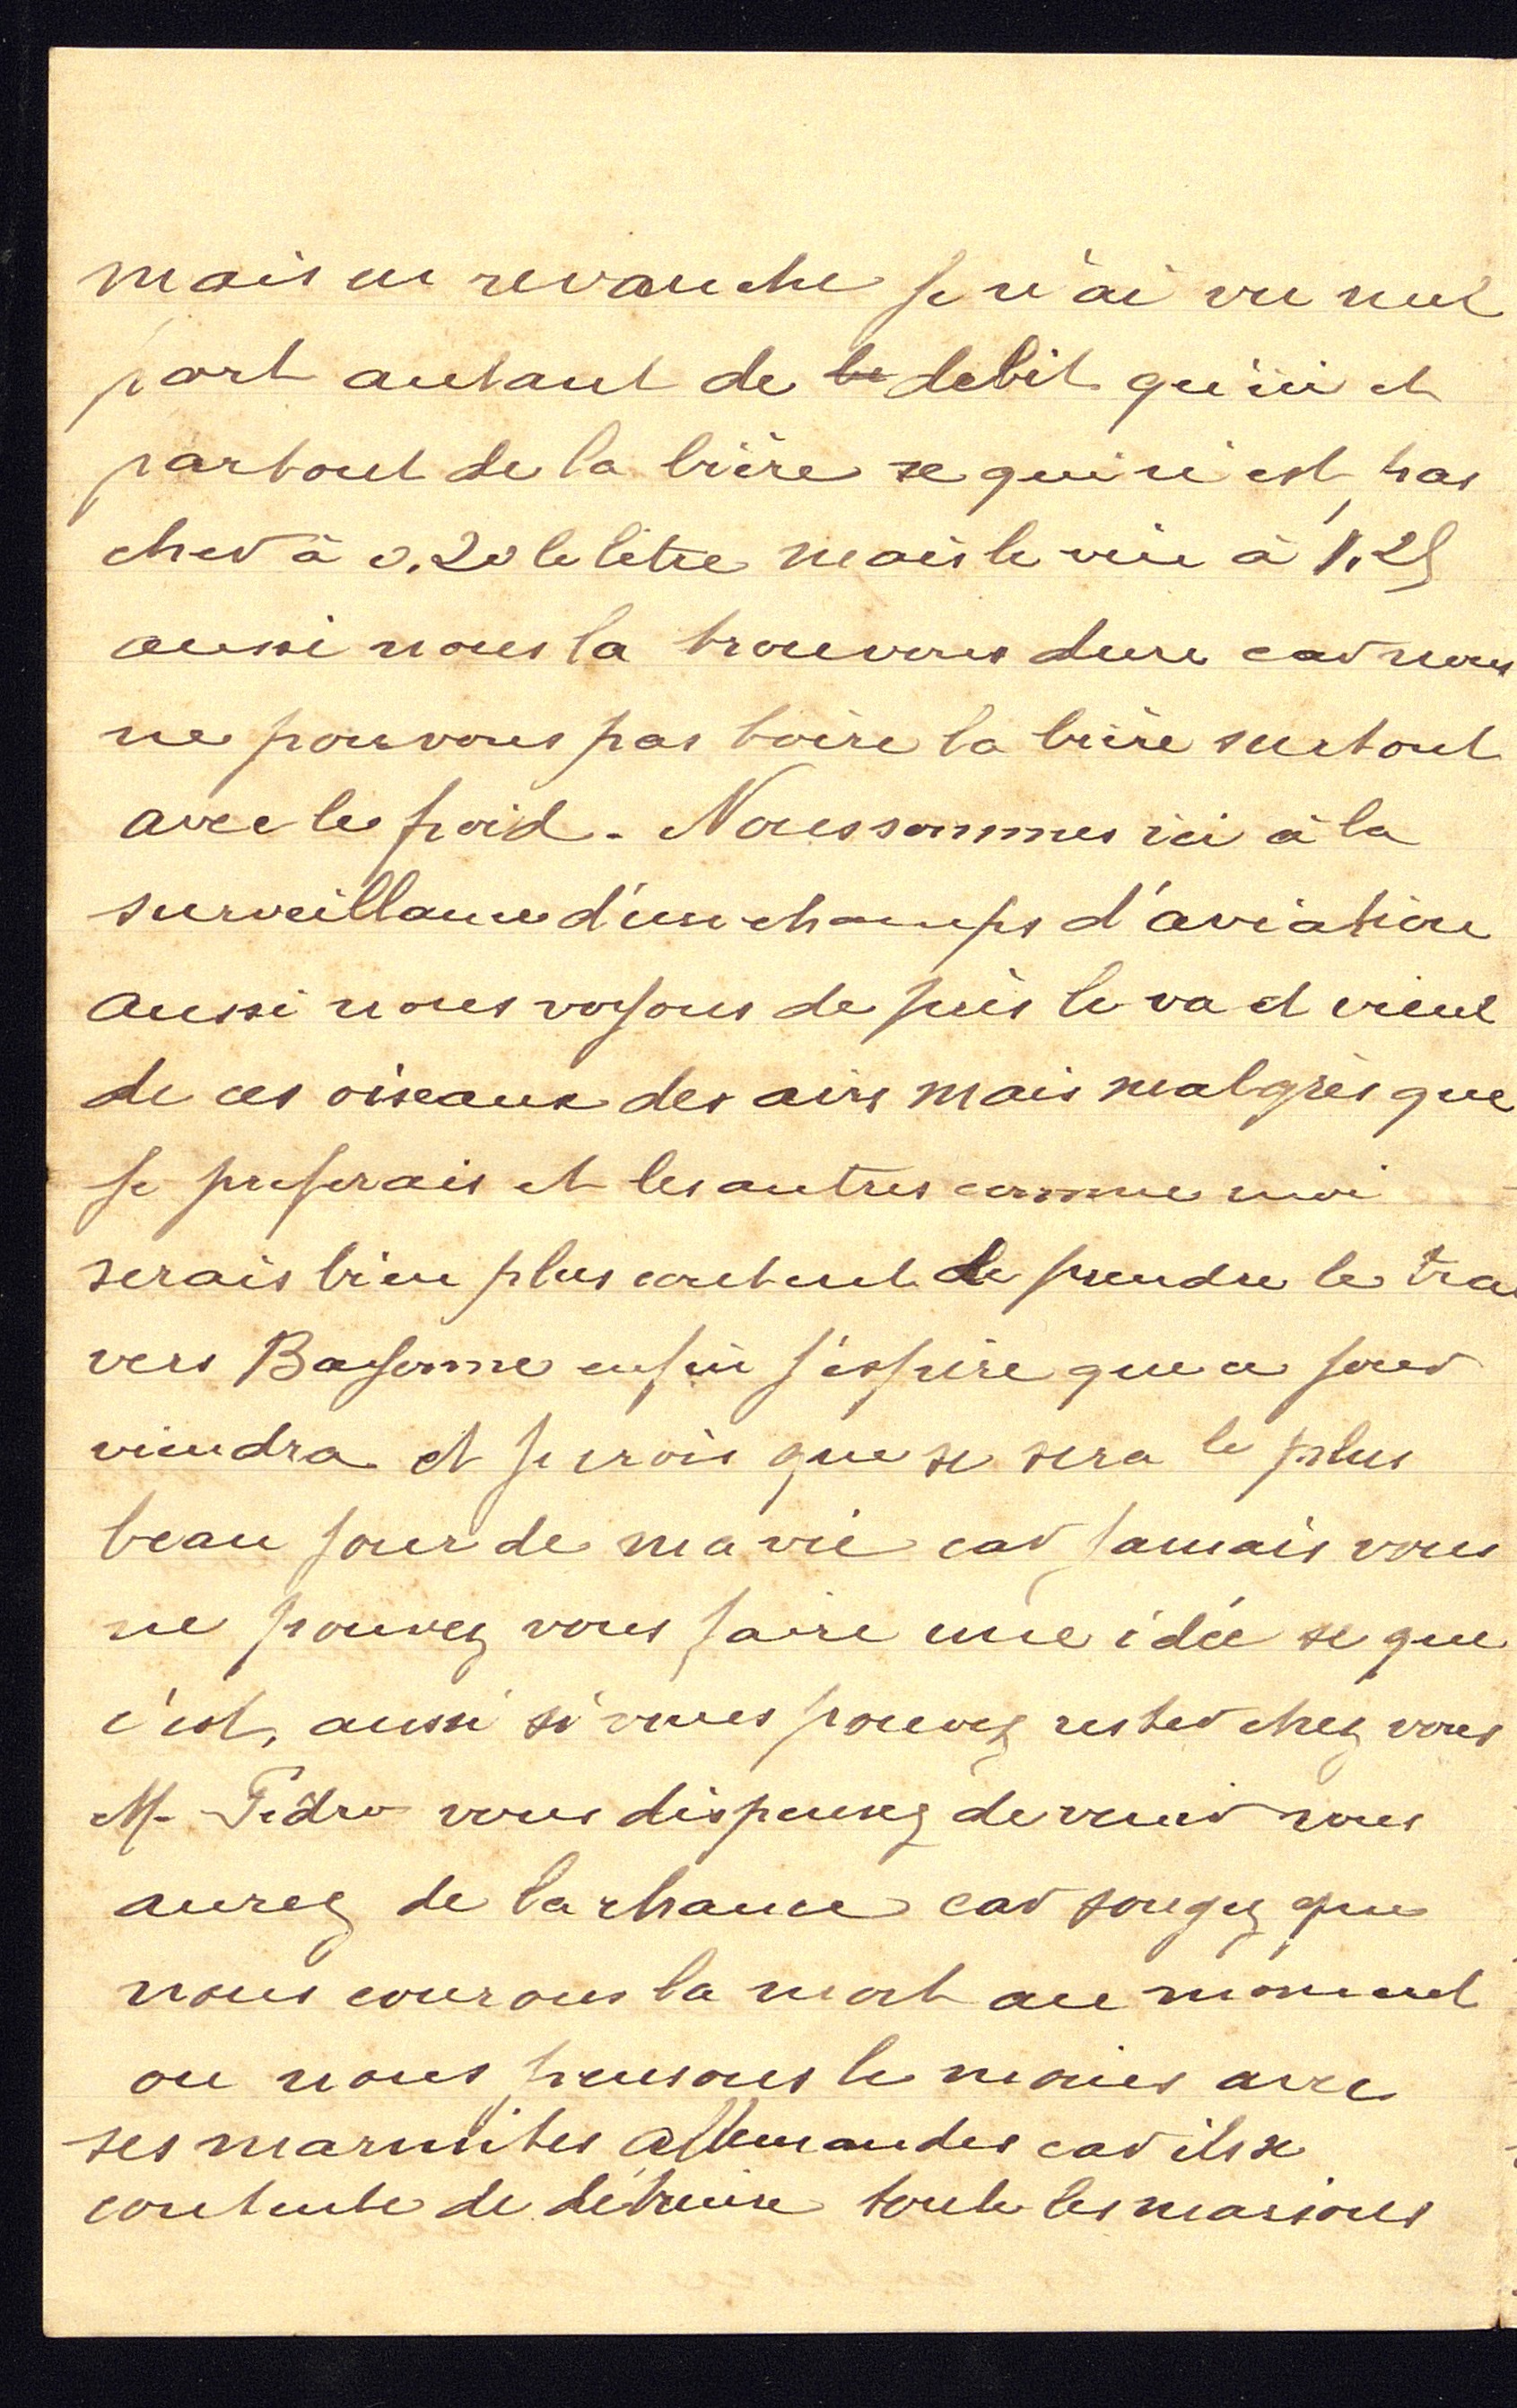 mais en revanche je n'ai vu nul
part autant de debit qu'ici et
partout de la bière se qui n'est pas
cher à 0.20 le litre mais le vin à 1.25
aussi nous la trouvons dure car nous
ne pouvons pas boire la bière surtout
avec le froid. Nous sommes ici à la
surveillance d'un champs d'aviation
aussi nous voyons de près le va et vient
de ces oiseaux des airs mais malgrès que
je preferais et les autres comme moi
serais bien plus content de prendre le trai
vers Bayonne enfin j'espère que ce jour
viendra et je crois que se sera le plus
beau jour de ma vie car jamais vous
ne pouvez vous faire une idée se que
c'est, aussi si vous pouvez rester chez vous
M. Pédro vous dispensez de venir vous
aurez de la chance car songez que
nous courons la mort au moment
ou nous pensons le moins avec
ses marmites allemandes car ils se
contente de détruire toute les maisons